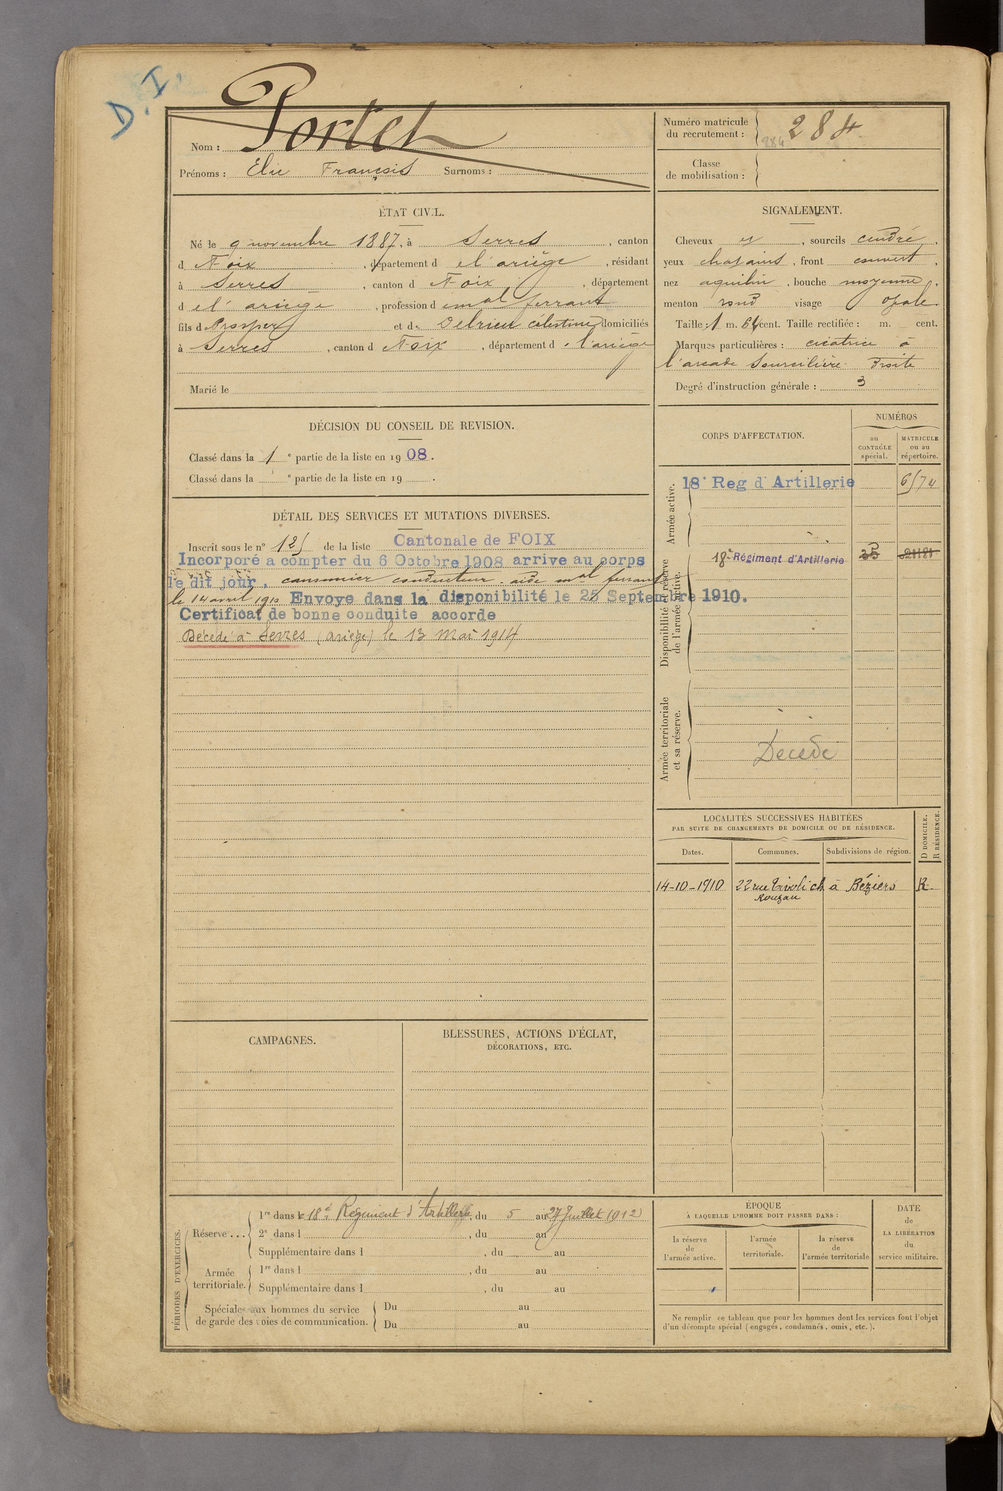 D. I.
Nom : Portet
Prénoms : Elie François Surnoms :
Numéro matricule du recrutement : 284
284
Classe de mobilisation :
ÉTAT CIVIL.
Né le 9 novembre 1887, à Serres, canton
d Foix, département d e l'ariège, résidant
à Serres, canton d Foix, département
d e l'ariège, profession d e mal ferrant
fils d Prosper et d Delrieu célestine, domiciliés
à Serres, canton d Foix, département d l'ariège
Marié le
SIGNALEMENT.
Cheveux et, sourcils cendré,
yeux chatains, front couvert,
nez aquilin, bouche moyenne,
menton rond visage ovale
Taille : 1 m. 64 cent. Taille rectifiée : m. cent.
Marques particulières : cicatrice à
l'arcade sourcilière droite
Degré d'instruction générale : 3
DÉCISION DU CONSEIL DE REVISION.
Classé dans la 1e partie de la liste en 1908.
Classé dans la e partie de la liste en 19 .
DÉTAIL DES SERVICES ET MUTATIONS DIVERSES.
Inscrit sous le n° 125 de la liste Cantonale de FOIX
Incorporé a compter du 6 Octobre 1908 arrive au corps
le dit jour, canonnier conducteur. aide mal ferrant
le 14 avril 1910 Envoye dans la disponibilité le 25 Septembre 1910.
Certificat de bonne conduite accorde
Décédé à Serres (ariège) le 13 Mai 1914
CORPS D'AFFECTATION.
NUMÉROS
au CONTRÔLE spécial.
MATRICULE ou au répertoire.
Armée active.
18e Reg d'Artillerie 6574
Disponibilité et réserve de l'armée active.
18e Régiment d'Artillerie
Armée territoriale et sa réserve.
Décédé
LOCALITÉS SUCCESSIVES HABITÉES
PAR SUITE DE CHANGEMENTS DE DOMICILE OU DE RÉSIDENCE.
Dates.
Communes.
Subdivisions de région.
D DOMICILE.
R RÉSIDENCE.
14-10-1910 22 rue Tivoli ch à Béziers R.
CAMPAGNES.
BLESSURES, ACTIONS D'ÉCLAT,
DÉCORATIONS, ETC.
PÉRIODES D'EXERCICES.
Réserve ...
1re dans le 18e Régiment d'Artillerie, du 5 au 27 Juillet 1912
2e dans l , du au
Supplémentaire dans l , du au
Armée territoriale.
1re dans l , du au
Supplémentaire dans l , du au
Spéciales aux hommes du service
de garde des voies de communication.
Du au
Du au
ÉPOQUE
À LAQUELLE L'HOMME DOIT PASSER DANS :
la réserve de l'armée active.
l'armée territoriale.
la réserve de l'armée territoriale
DATE
de
LA LIBÉRATION
du
service militaire.
Ne remplir ce tableau que pour les hommes dont les services font l'objet
d'un décompte spécial (engagés, condamnés, omis, etc.).